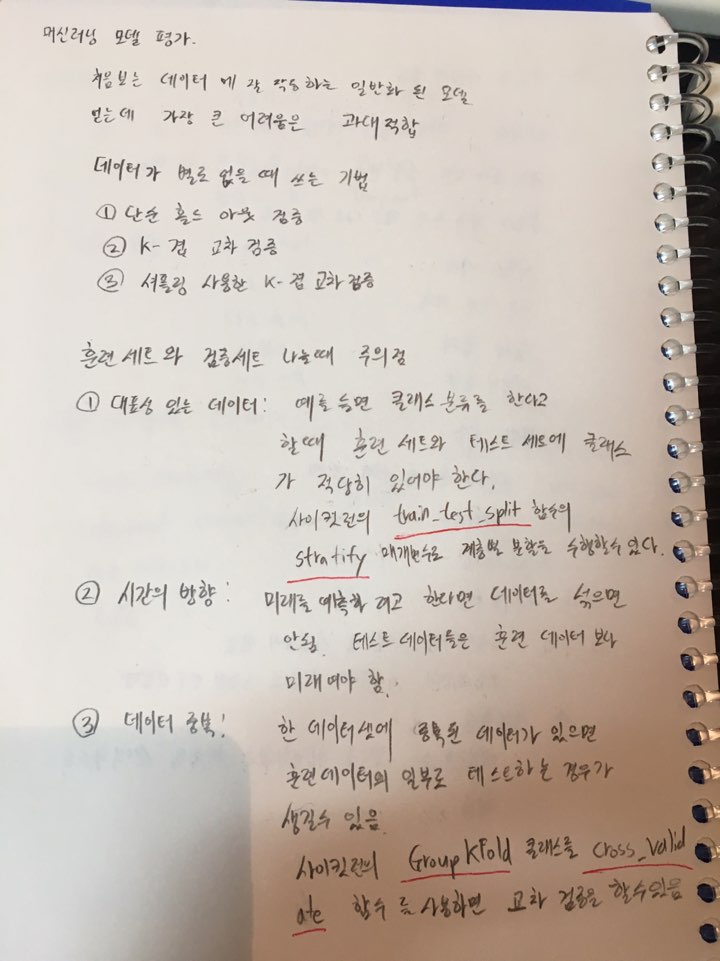 머신러닝 모델 평가.
처음보는 데이터 에 잘 작동하는 일반화 된 모델
얻는데 가장 큰 어려움은 과대적합
데이터가 별로 없을 때 쓰는 기법
① 단순 홀드 아웃 검증
② K-겹 교차 검증
③ 셔플링 사용한 K-겹 교차검증
훈련 세트와 검증세트 나눌때 주의점
① 대표성 있는 데이터: 예를 들면 클래스 분류를 한다고
할때 훈련 세트와 테스트 세트에 클래스
가 적당히 있어야 한다.
사이킷런의 train_test_split 함수의
stratify 매개변수로 계층별 분할을 수행할수있다.
② 시간의 방향: 미래를 예측하 려고 한다면 데이터를 섞으면
안됨. 테스트 데이터들은 훈련 데이터 보다
미래여야 함.
③ 데이터 중복: 한 데이터셋에 중복된 데이터가 있으면
훈련데이터의 일부로 테스트하는 경우가
생길수 있음
사이킷런의 GroupKFold 클래스를 cross_valid
ate 함수 를 사용하면 교차 검증을 할수있음